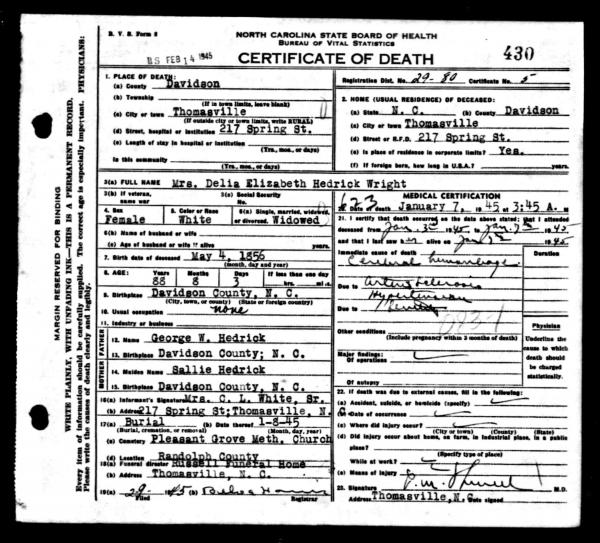 D. V. S. Form 8
NORTH CAROLINA STATE BOARD OF HEALTH
BUREAU OF VITAL STATISTICS
FEB 14 1945
CERTIFICATE OF DEATH
430
MARGIN RESERVED FOR BINDING
WRITE PLAINLY, WITH UNFADING INK—THIS IS A PERMANENT RECORD.
Every item of information should be carefully supplied. The correct age is especially important. PHYSICIANS:
Please write the causes of death clearly and legibly.
1. PLACE OF DEATH:
(a) County Davidson
(b) Township
(If in town limits, leave blank)
(c) City or town Thomasville
(If outside city or town limits, write RURAL)
(d) Street, hospital or institution 217 Spring St.
(e) Length of stay in hospital or institution
(Yrs., mos., or days)
In this community
(Yrs., mos., or days)
Registration Dist. No. 29-80 Certificate No. 5
2. HOME (USUAL RESIDENCE) OF DECEASED:
(a) State N. C. (b) County Davidson
(c) City or town Thomasville
(d) Street or R.F.D. 217 Spring St.
(e) Is place of residence in corporate limits? Yes.
(f) If foreign born, how long in U.S.A.? years.
3(a) FULL NAME Mrs. Delia Elizabeth Hedrick Wright
3(b) If veteran,
name war
4. Sex
Female
5. Color
White
6(a) Single, married, widowed,
or divorced. Widowed
6(b) Name of husband or wife
(c) Age of husband or wife if alive years.
7. Birth date of deceased May 4, 1856
(month, day and year)
8. AGE:
Years Months Days If less than one day
88 8 3 hrs. min.
9. Birthplace Davidson County, N. C.
(City, town, or county) (State or foreign country)
10. Usual occupation none
11. Industry or business
FATHER
12. Name George W. Hedrick
13. Birthplace Davidson County; N. C.
MOTHER
14. Maiden Name Sallie Hedrick
15. Birthplace Davidson County, N. C.
16(a) Informant's Signature Mrs. C. L. White, Sr.
(b) Address 217 Spring St; Thomasville, N. C.
17(a) Burial (b) Date thereof 1-8-45
(Burial, cremation, or removal) (Month, day, year)
(c) Cemetery Pleasant Grove Meth. Church
(d) Location Randolph County
18(a) Funeral director Russell Funeral Home
(b) Address Thomasville, N. C.
19(a) 1945 (b)
Filed Registrar
623
MEDICAL CERTIFICATION
death January 7, 1945, 3:45 A. m.
21. I certify that death occurred on the date above stated; that I attended
deceased from Jan. 1945 to Jan. 7th 1945
and that I last saw alive on Jan 1945
Immediate cause of death
Duration
Cerebral hemorrhage
Due to Arteriosclerosis
Hypertension
Due to Senility
Other conditions
(Include pregnancy within 3 months of death)
Physician
Underline the cause to which death should be charged statistically.
Major findings:
Of operations
Of autopsy
22. If death was due to external causes, fill in the following:
(a) Accident, suicide, or homicide (specify)
(b) Date of occurrence
(c) Where did injury occur?
(City or town) (County) (State)
(d) Did injury occur about home, on farm, in industrial place, in a public
place?
(Specify type of place)
While at work?
(e) Means of injury
23. Signature M.D.
Address Thomasville, N. C. Date signed